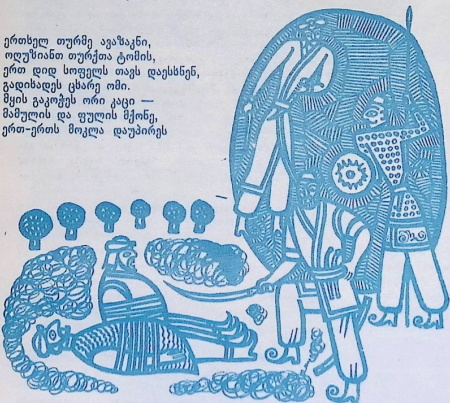 ერთსელ თურმე ავაზაკნი,
ოღუზიანთ თურქთა ტომის,
ერთ დიდ სოფელს თავს დაესსნენ,
გადისადეს ცხარე ომი.
მყის გაკოჭეს ორი კაცი —
მამულის და ფულის მქონე,
ერთ-ერთს მოკლა დაუპირეს